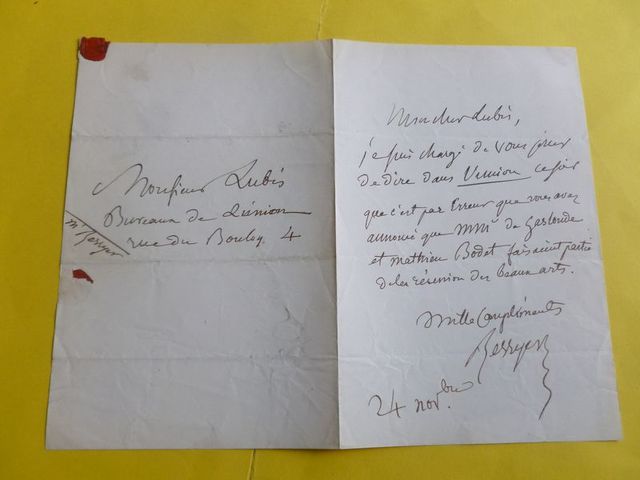 Monsieur Lubis
Bureaux de l'union
rue du Bouloy. 4
M Berryer
Mon cher Lubis,
je suis chargé de vous prier
de dire dans l'union ce soir
que c'est par Erreur que vous avez
annoncé que MMrs de
et mathieu Bodet faisaient partie
de la réunion des beaux arts.
Mille Compliments
Berryer
24 novbre.